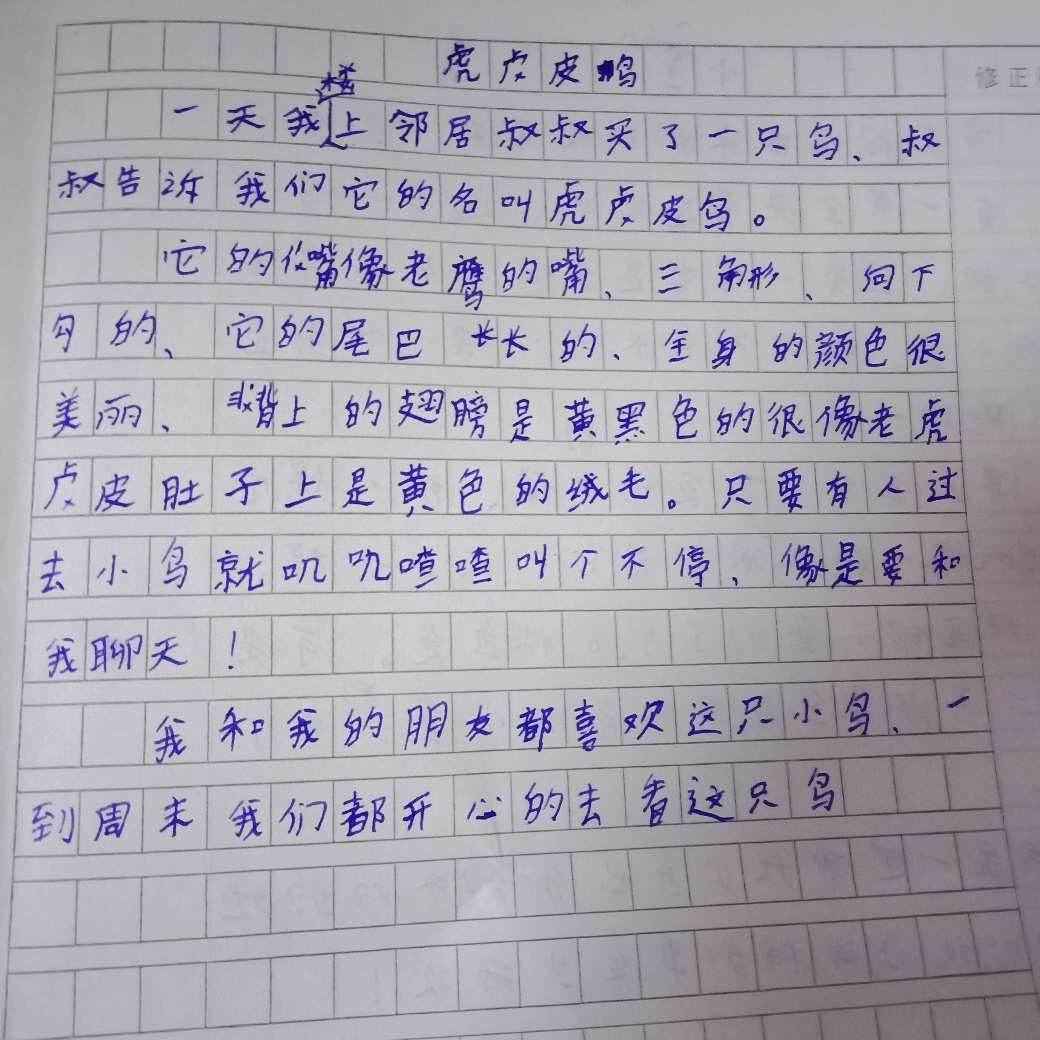 虎虎皮鸟
一天我楼上邻居叔叔买了一只鸟、叔
叔告诉我们它的名叫虎虎皮鸟。
它的嘴像老鹰的嘴、三角形、向下
勾的、它的尾巴长长的、全身的颜色很
美丽、背上的翅膀是黄黑色的很像老虎
虎皮肚子上是黄色的绒毛。只要有人过
去小鸟就叽叽喳喳叫个不停、像是要和
我聊天!
我和我的朋友都喜欢这只小鸟、一
到周末我们都开心的去看这只鸟